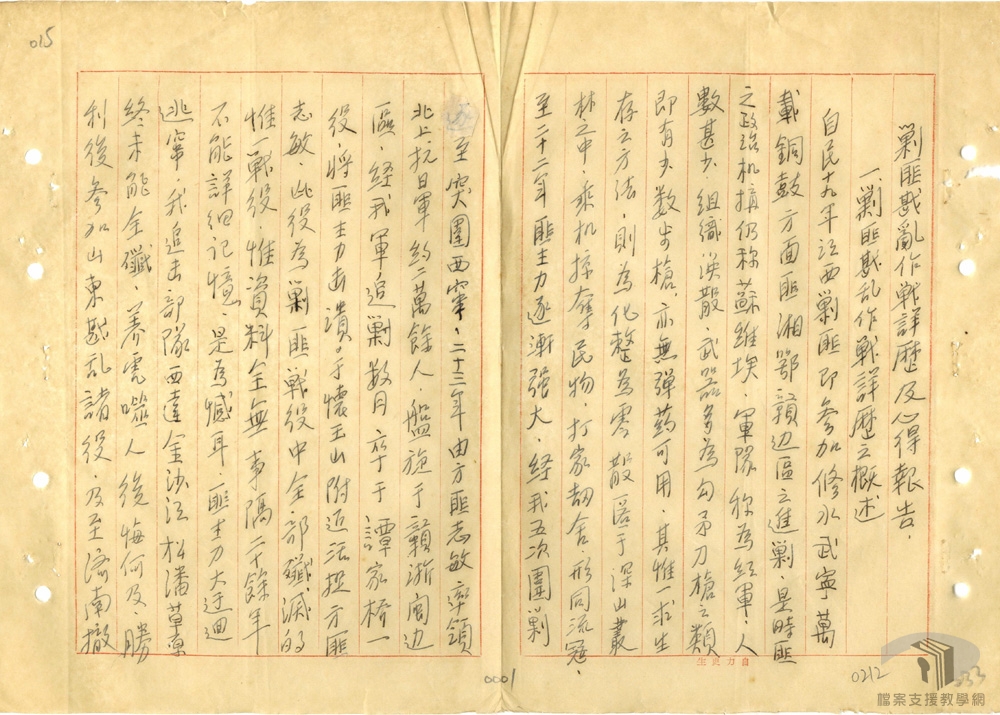 剿匪戡亂作戰詳歷及心得報告.
一.剿匪戡乱作戰詳歷之概述
自民十九年江西剿匪即参加修水武寧萬
載銅鼓方面匪湘鄂贛边區之進剿.是時匪
之政治机構仍称蘇維埃.軍隊称為紅軍.人
數甚少.組織渙散.武器多為勾矛刀槍之類
即有少数步槍.亦無弹葯可用.其惟一求生
存之方法.則為化整為零散匿于深山叢
林之中.乘机掠奪民物.打家劫舍.形同流寇.
至二十二年匪主力逐漸强大.経我五次圍剿
至突圍西竄.二十三年由方匪志敏率領
北上抗日軍約二萬餘人.盤施于贛浙閩边
區.経我軍追剿数月卒于譚家橋一
役.將匪主力击潰.于懷玉山附近活捉方匪
志敏.此役為剿匪戰役中全部殲滅的
惟一戰役.惟資料全無事隔二十餘年
不能詳細记憶.是為憾耳.匪主力大迂迴
逃竄.我追击部隊西達金沙江松潘草原
終未能全殲.养虎噬人後悔何及.勝
利後参加山東戡乱諸役.及至済南撤
自力更生
015
0001
0212
檔案支援教學網